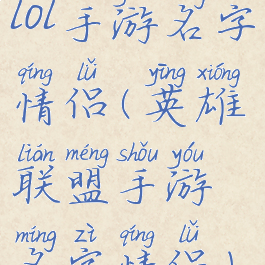 lol手游名字
qíng lǚ yīng xióng
情侣(英雄
lián méng shǒu yóu
联盟手游
míng zì qíng lǚ
名字情侣)